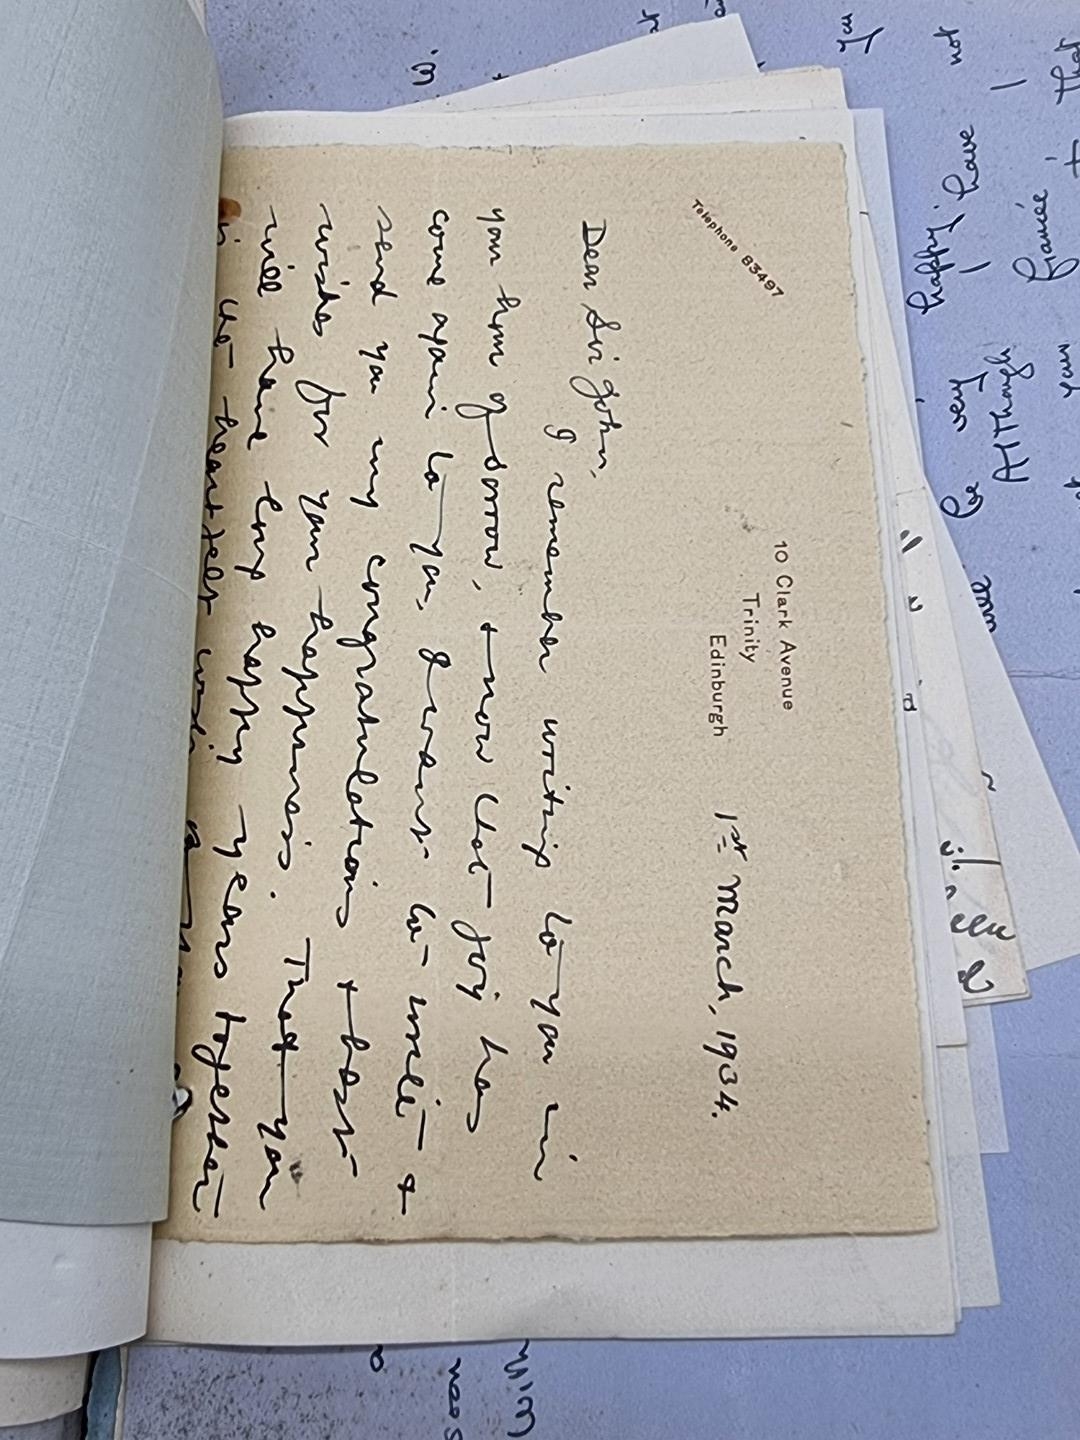 Telephone 83497
10 Clark Avenue
Trinity
Edinburgh
1st March, 1934.
Dear Sir John,
I remember writing to you in
your hour of sorrow, + now that joy has
come again to you, I want to write +
send you my congratulations + best
wishes for your happiness. That you
will have long happy years together
is the heartfelt wish
you
not
happy. I have
be very
Although I
fiancée
that
your